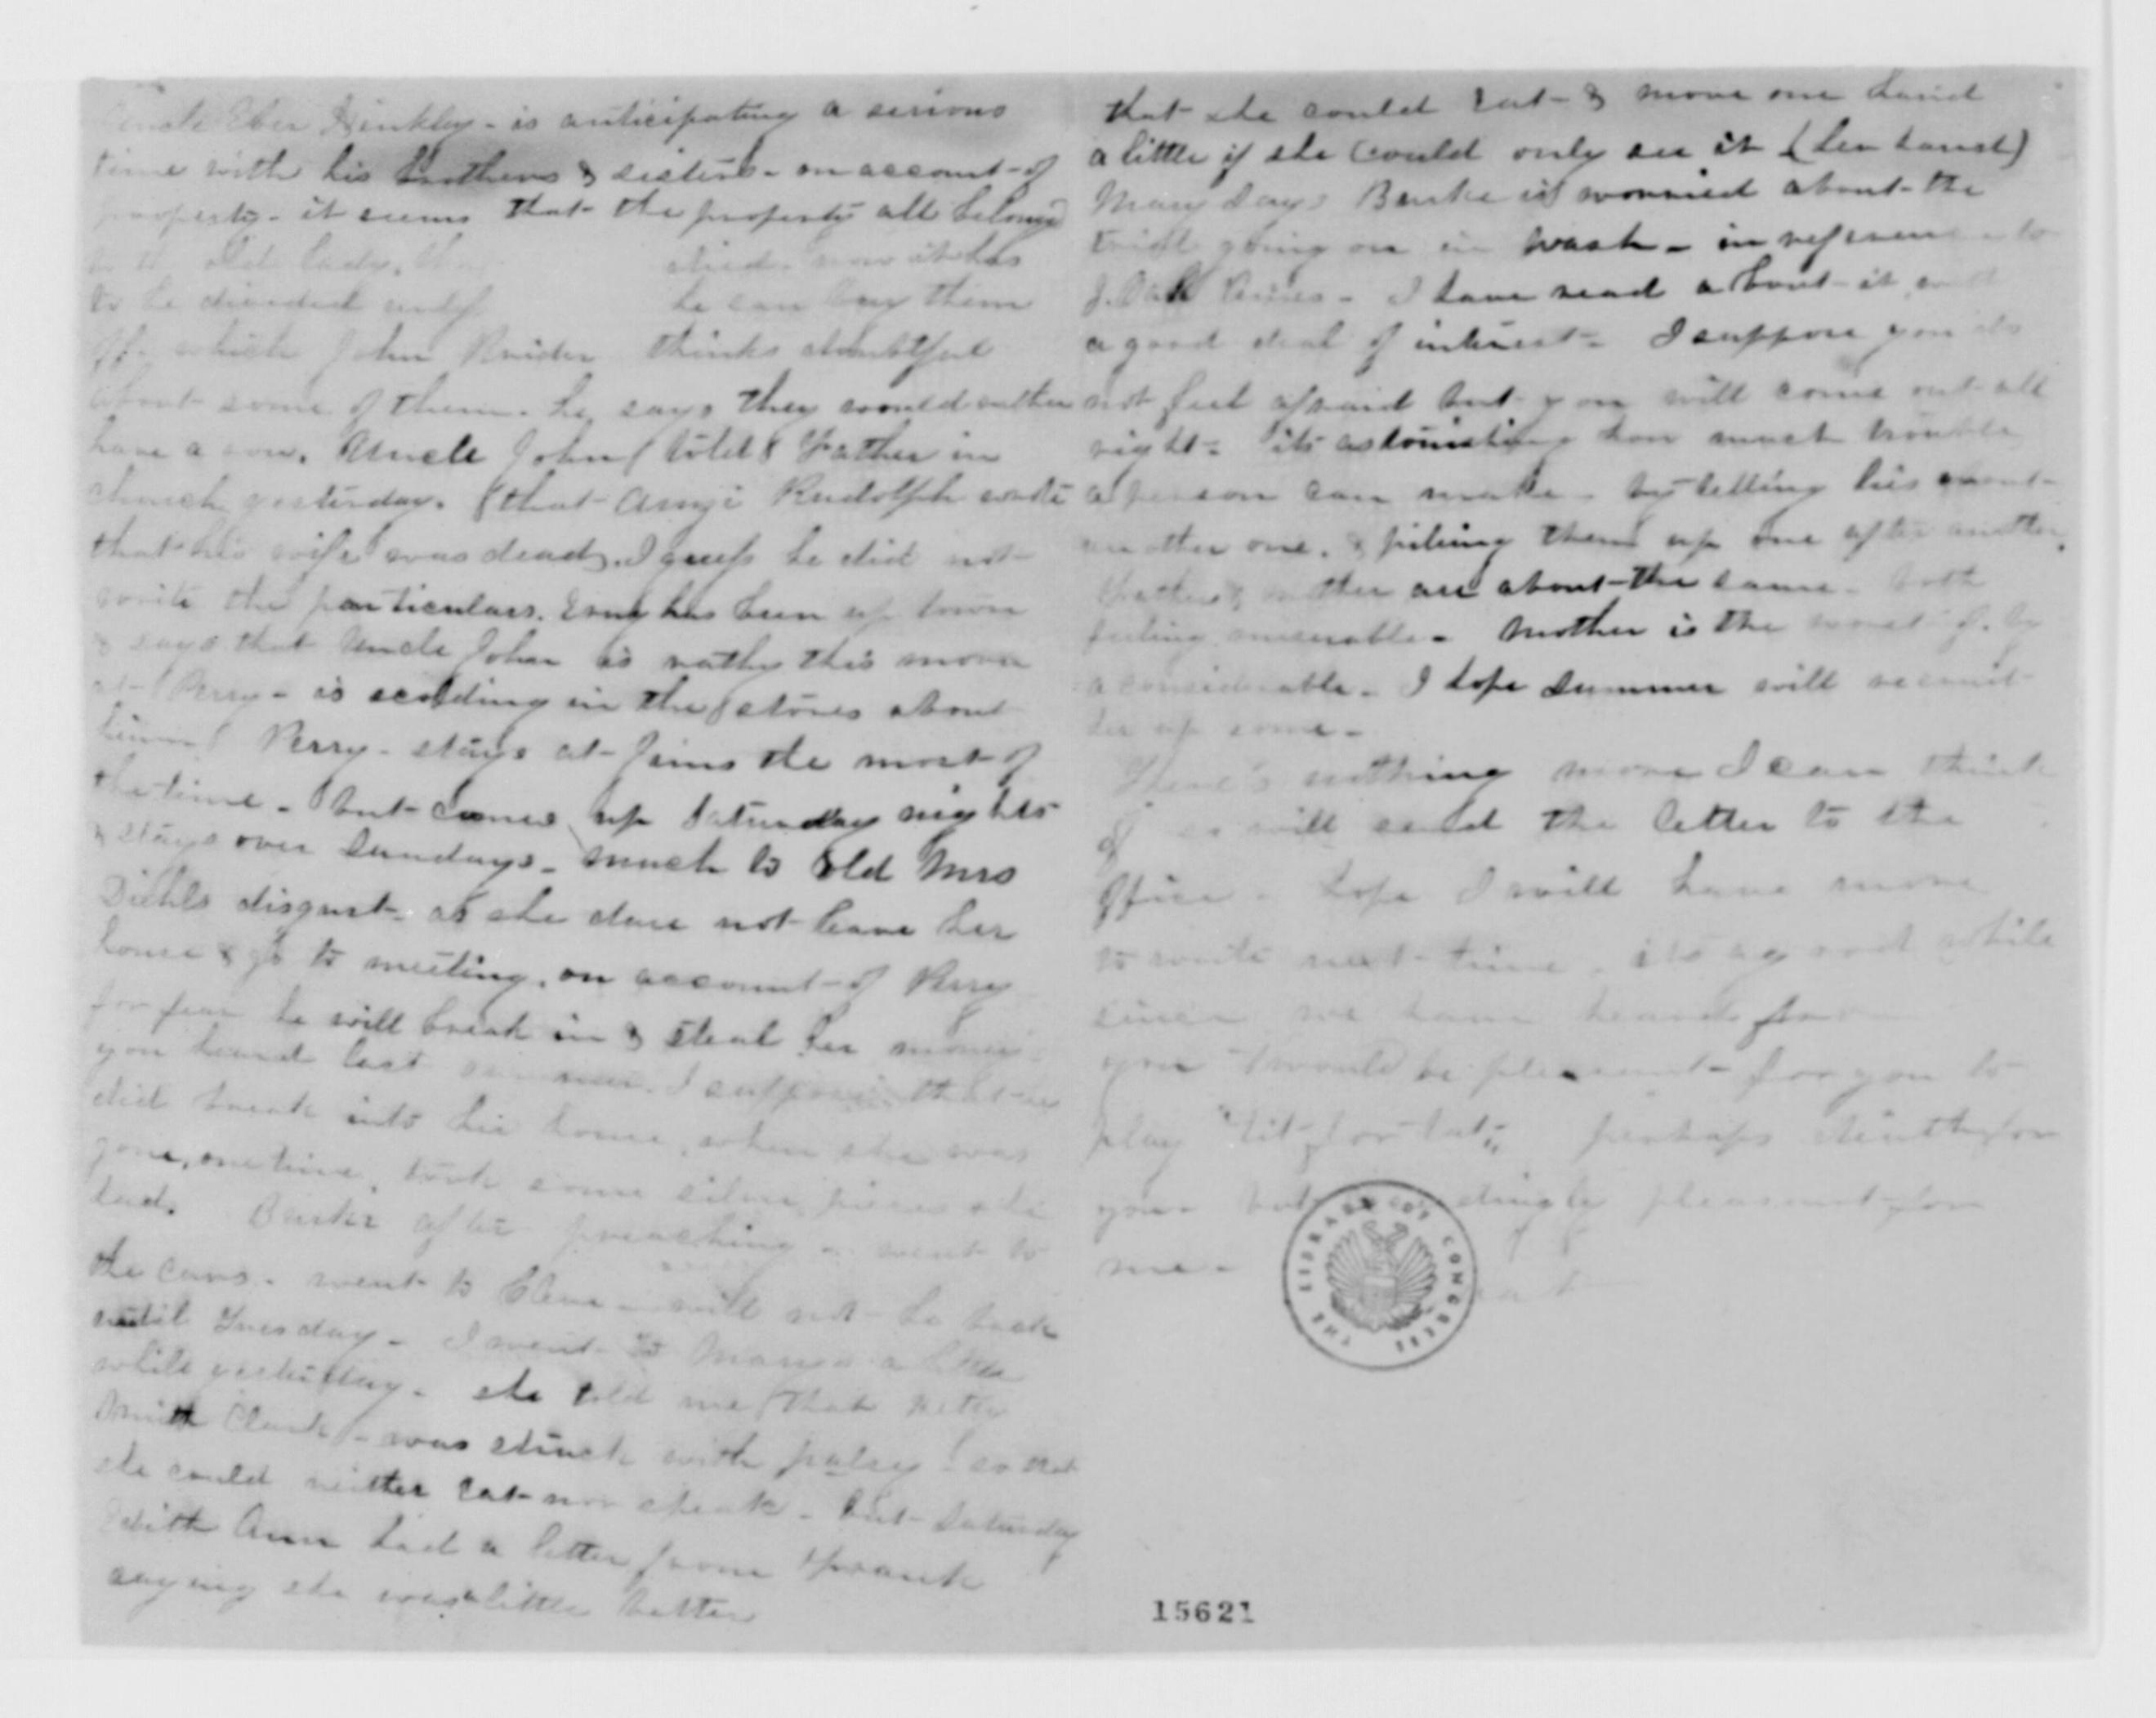 Uncle Eber Hinkley - is anticipating a serious
time with his brothers & sisters - on account - of
property - it seems that - the property all belonged
to the old lady, died. now it has
to be divided he can buy them
off. which John thinks doubtful
about - some of them. he says they would rather
have a row. Uncle John told Father in
church yesterday. that - Rudolph wrote
that his wife was dead. I guess he did not -
write the particulars. has been up town
& says that Uncle John is wrathy this morn
at - Perry - is scolding in the stores about
him. Perry - stays at - Jims the most - of
the time - but - comes up Saturday nights
& stays over Sundays - much to old Mrs
Diehls disgust - as she dare not - leave her
house & go to meeting. on account - of Perry
for fear he will break in & steal her money -
you heard last summer. I suppose that - he
did break into her house, when she was
gone, one time, took some silver pieces she
had. Burke after preaching - went to
the cars. went - to Cleve - will not - be back
until Tuesday - I went - to Marys a little
while yesterday - she told me that
Clark - was struck with palsy - so that
she could neither eat - nor speak - but - Saturday
Edith Ann had a letter from Frank
saying she was a little better
that - she could eat - & move one hand
a little if she could only see it (her hand)
Mary says Burke is worried about - the
trial going on in Wash - in reference - to
J. I have read about - it with
a good deal of interest - I suppose you do
not feel afraid but - you will come out - all
right - its astonishing how much trouble
a person can make - by telling lies about -
another one. & pileing them up one after another.
Father & mother are about - the same - both
feeling miserable - Mother is the worst
a considerable - I hope summer will recruit -
her up some -
There's nothing more I can think
of so will send the letter to the
office - hope I will have more
to write next - time. its a good while
since we have heard from
you - would be pleasant - for you to
play "tit - for - tat" perhaps
you but pleasant - for
me -
THE LIBRARY OF CONGRESS
15621